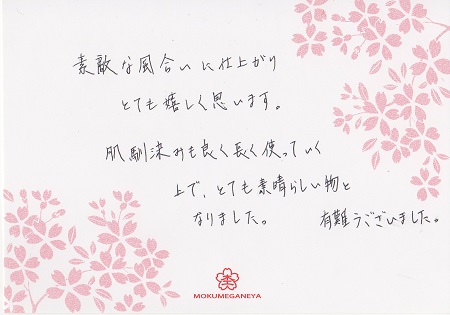 素敵な風合いに仕上がり
とても嬉しく思います。
肌馴染みも良く長く使っていく
上で、とても素晴らしい物と
なりました。 有難うございました。
MOKUMEGANEYA